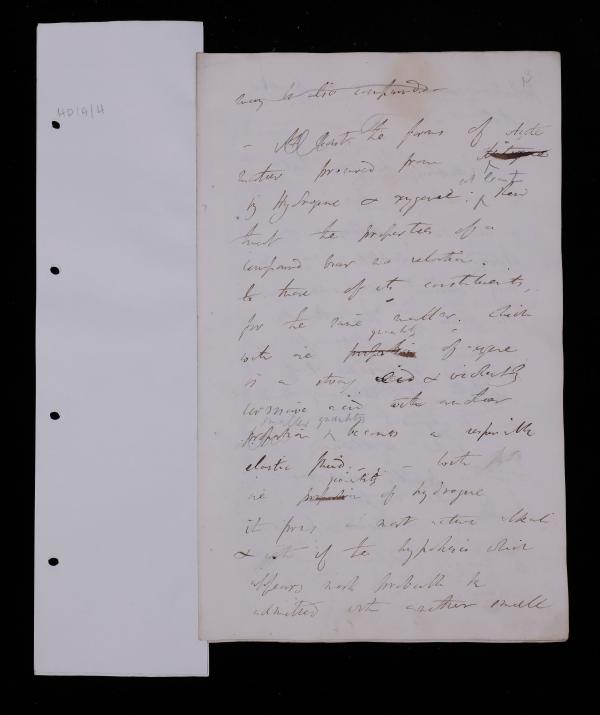 HD19/H
may be decompounded
- the forms of Azote
matter procured from
by Hydrogene & oxygene: at least
that the properties of a
compound bear no relation
to those of its constituents,
for the same matter. which
with one quantity of oxygene
is a strong acid & violently
corrosive acid with another
proportion smaller quantity becomes a respirable
elastic fluid. - - with
one quantity of hydrogene
it forms a most active Alkali
& yet if the hypothesis which
appears most probable be
admitted with another small